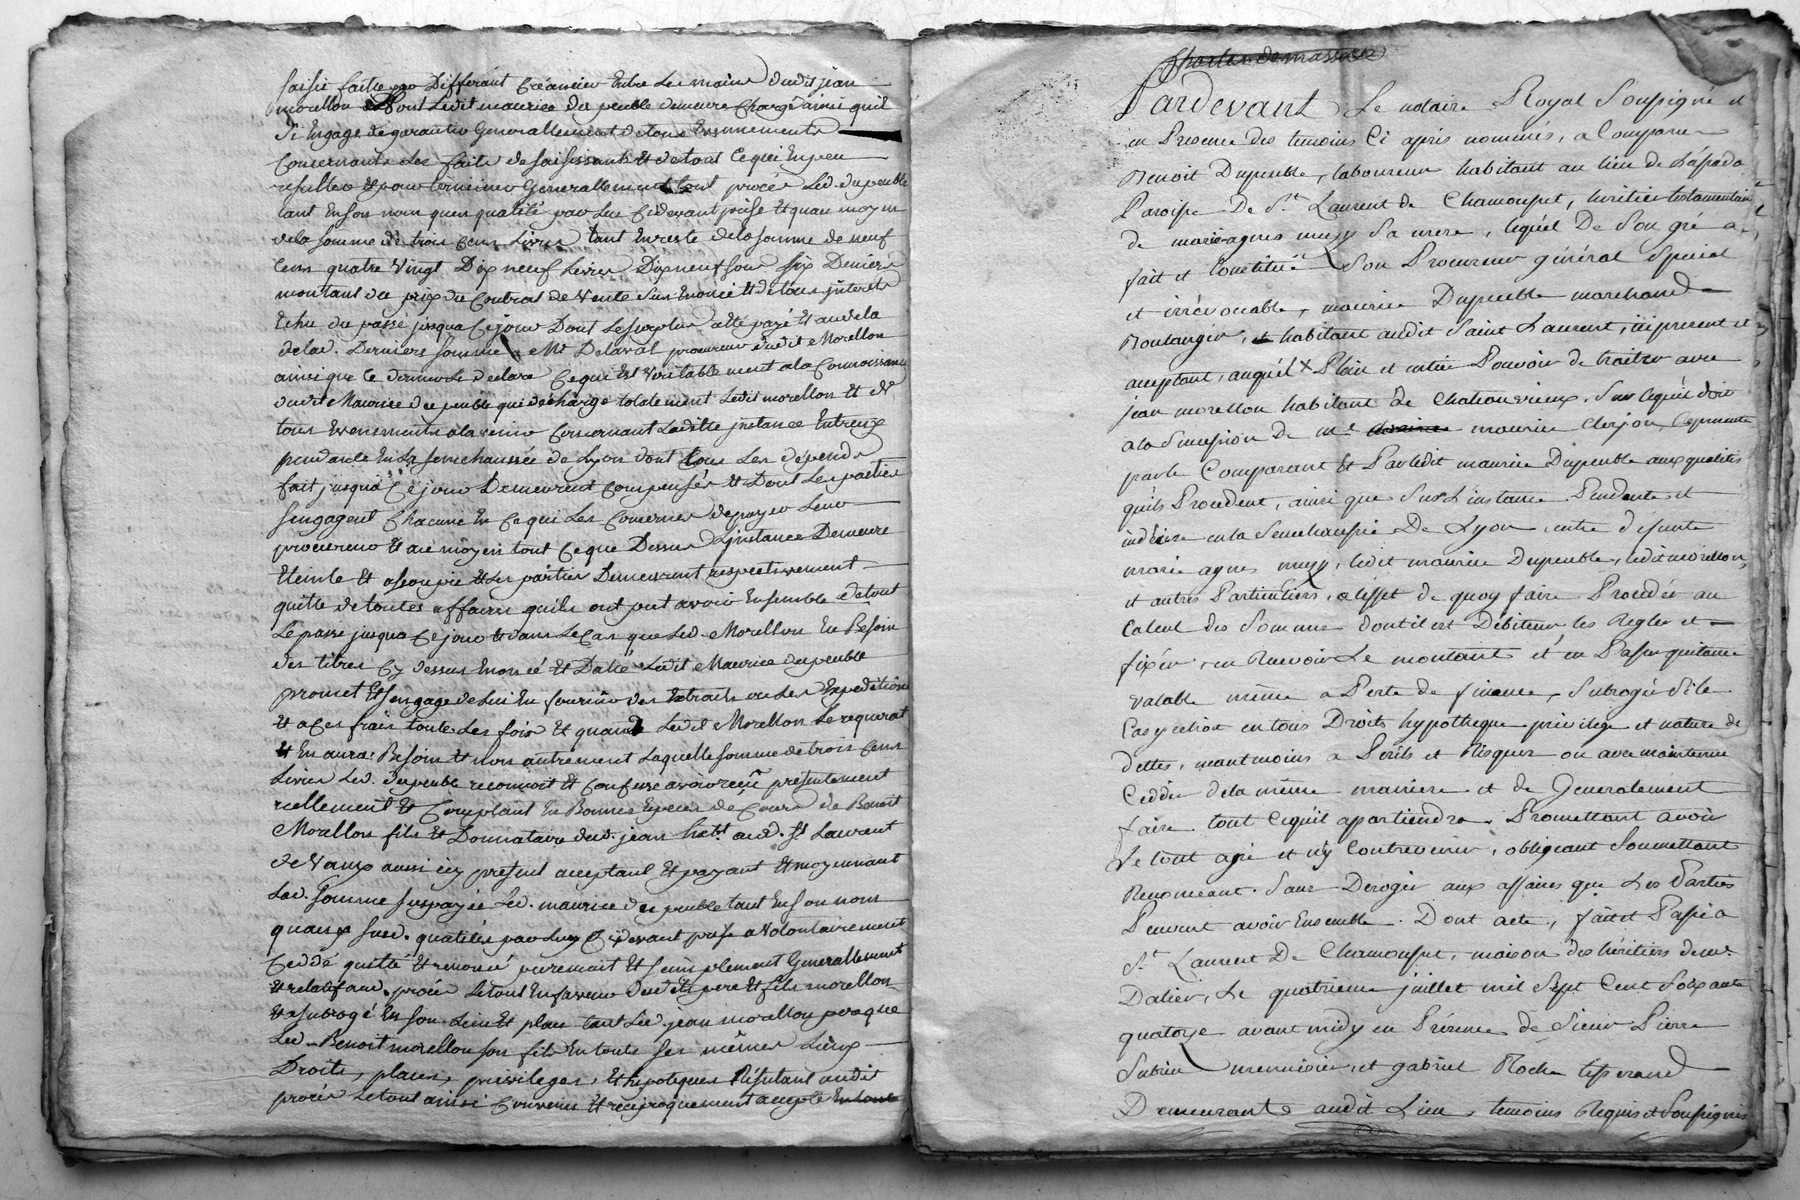 saisie faitte par Differant Créancier Entre Les mains dudit jean
morellon Dont Ledit maurice du peuble demeure Chargé ainsi quil
S'Engage de garantir Generallement de tous Evennements
Concernants Les faits de saisissants Et de tout Ce qui En peu
resulter Et pour terminer Generallement tout procés Led. dupeuble
tant En son nom quen qualité par Lui Cydevant prise Et quau moyen
de la somme de trois Cens Livres tant En reste de la somme de neuf
Cens quatre Vingt Dix neuf Livres Dixneuf sous six Deniers
montant du prix du Contrat de Vente Sus Enoncé Et de tous jnterets
Echu du passé jusqua Ce jour Dont Le surplus a été payé Et au dela
de lad. Derniere somme a Me Delaval procureur dudit Morellon
ainsi que Ce dernier Le declare Ce qui Est Veritablement a la Connoissance
dudit Maurice du peuble qui décharge totalement Ledit morellon Et de
tous Evenements a la venir Concernant Laditte jnstance Entreux
pendante En La senechaussée de Lyon dont tous Les dépends
fait jusqua Ce jour Demeurent Compensés Et Dont Les parties
sengagent Chacune En Ce qui Les Concernes de payer Leur
procureur Et au moyen tout Ce que Dessus L'jnstance Demeure
Eteinte Et assoupie Et Les parties Demeurent respectivement
quitte de toutes affaires quils ont put avoir Ensemble de tout
Le passé jusqua Ce jour Et dans Le Cas que Led. Morellon En Besoin
des titres Cy dessus Enoncé Et Datté Ledit Maurice dupeuble
promet Et sengage de Lui En fournir des Extraits ou Les Expeditions
Et a Ces frais toutes Les fois Et quand Ledit Morellon Le requerat
Et En aura Besoin Et non autrement Laquelle somme de trois Cens
Livres Led. dupeuble reconnoit Et Confesse avoir reçu présentement
réellement Et Comptant En Bonnes Especes de Cours de Benoit
Morellon fils Et Donnataire dud. jean hatt. aud. St Laurent
de Vaux aussi icy present acceptant Et payant Et moyennant
Lad. somme suspayée Led. maurice du peuble tant En son nom
quaux susd. qualités par Luy Cydevant prise a Volontairement
Ceddé quitté Et renoncé purement Et simplement Generallement
Et relatif aud. procés Le tout En faveur desdits pere Et fils morellon
Et a subrogé En son Lieu Et place tant Led. jean morellon que
Led. Benoit morellon son fils En touts ses mêmes Lieux
Droits, places, privileges, Et hipoteques Résultant audit
procés Le tout ainsi Convenu Et reciproquement accepté
Pardevant Le notaire Royal Soussigné et
en Presence des temoins Ci après nommés, a Comparu
Benoit Dupeuble, laboureur habitant au lieu de
Paroisse De St. Laurent de Chamousset, héritier testamentaire
de marie agnes muzy Sa mere, lequel De Son gré a
fait et Constitué Son Procureur général Special
et irrévocable, maurice Dupeuble marchand
Boulanger, habitant audit Saint Laurent, ici present et
acceptant, auquel x Plein et entier Pouvoir de traiter avec
jean morellon habitant de Chatonvieux, Sur lequel doit
a la Succession De me maurice Clerjon,
par le Comparant Et Par ledit maurice Dupeuble aux qualités
quils Procedent, ainsi que Sur L'instance Pendente et
indécise en la Senechaussée De Lyon entre défunte
marie agnes muzy, ledit maurice Dupeuble, ledit morellon,
et autres Particuliers, a l'effet de quoy faire Procéder au
Calcul des Sommes dont il est Débiteur les Regler et
fixér, en Recevoir Le montant et en Passer quittance
valable même a Perte de finance, Subroger Si le
Cas y echoit en tous Droits hypotheque privilege et nature de
dettes, neantmoins a Perils et Risques ou avec maintenue
Cedder de la même maniere et de Generalement
faire tout Ce qu'il apartiendra. Promettant avoir
Le tout agré et n'y Contrevenir, obligeant Soumettant
Renonceant Sans Deroger aux affaires que Les Parties
Peuvent avoir Ensemble. Dont acte, fait et Passé a
St. Laurent De Chamousset, maison des héritiers de mr.
Dalier, Le quatrieme juillet mil Sept Cent Soixante
quatorze avant midy en Présence de Sieur Pierre
Subrin menuisier, et gabriel Roche tisserand
Demeurants audit Lieu, temoins Requis et Soussignés